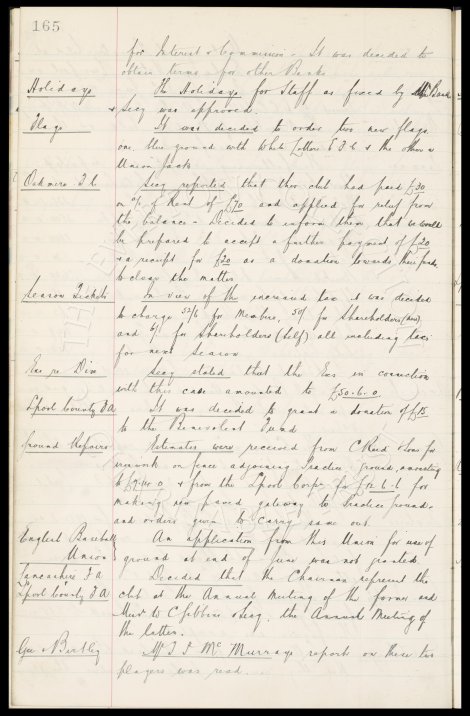 165
for Interest & Commission - It was decided to
obtain terms for other Banks
Holidays The Holidays for Staff as fixed by
& Secy was approved.
Flags It was decided to order two new flags
one, blue ground with White Letters E F C & the other a
Union Jack
Oakmere F. C. Secy reported that this club had paid £30
on a/c of Rent of £70 and applied for relief from
the balance - Decided to inform them that we would
be prepared to accept a further payment of £20
& a receipt for £20 as a donation towards their funds
to close the matter
Season Tickets In view of the increased tax it was decided
to charge 52/6 for Members, 50/- for Shareholders
and for Shareholders (self) all including tax
for next Season
Exs re Dixie Secy stated that the Exs in connection
with this case amounted to £50.6.0
Lpool County F A It was decided to grant a donation of £15
to the Benevolent Fund
Ground Repairs Estimates were received from C Reid & Sons for
on fence adjoining Practice ground, amounting
to & from the Lpool Corpn for for
making new paved gateway to Practice ground.
and orders given to carry same out
English Baseball An application from this Union for use of
Union ground at end of June was not granted
Lancashire F A Decided that the Chairman represent the
Lpool County F A club at the Annual Meeting of the former and
W C Gibbins & Secy. the Annual Meeting of
the latter.
Gee & Birtley Mr T. F. McMurray's report on these two
players was read.